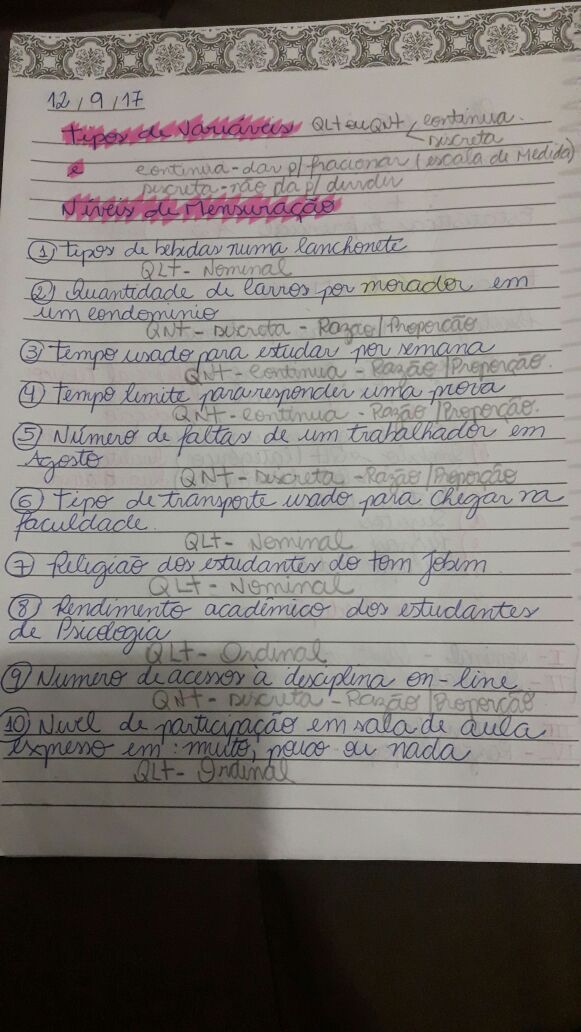 12/9/17
Tipos de Variáveis QLT ou QNT continua.
Discreta
e continua - dar p/ fracionar (escala de Medida)
Discreta - não da p/ dividir
Níveis de Mensuração
① Tipos de bebidas numa lanchonete
QLT - Nominal
② Quantidade de carros por morador em
um condominio
QNT - Discreta - Razão/Proporção
③ Tempo usado para estudar por semana
QNT - Continua - Razão/Proporção.
④ Tempo limite para responder uma prova
QNT - Continua - Razão/Proporção.
⑤ Número de faltas de um trabalhador em
Agosto
QNT - Discreta - Razão/Proporção
⑥ Tipo de transporte usado para chegar na
faculdade.
QLT - Nominal
⑦ Religião dos estudantes do Tom Jobim
QLT - Nominal
⑧ Rendimento acadêmico dos estudantes
de Psicologia
QLT - Ordinal
⑨ Numero de acessos à desciplina on-line
QNT - Discreta - Razão/Proporção
⑩ Nivel de participação em sala de aula
expresso em: muito, pouco ou nada
QLT - Ordinal